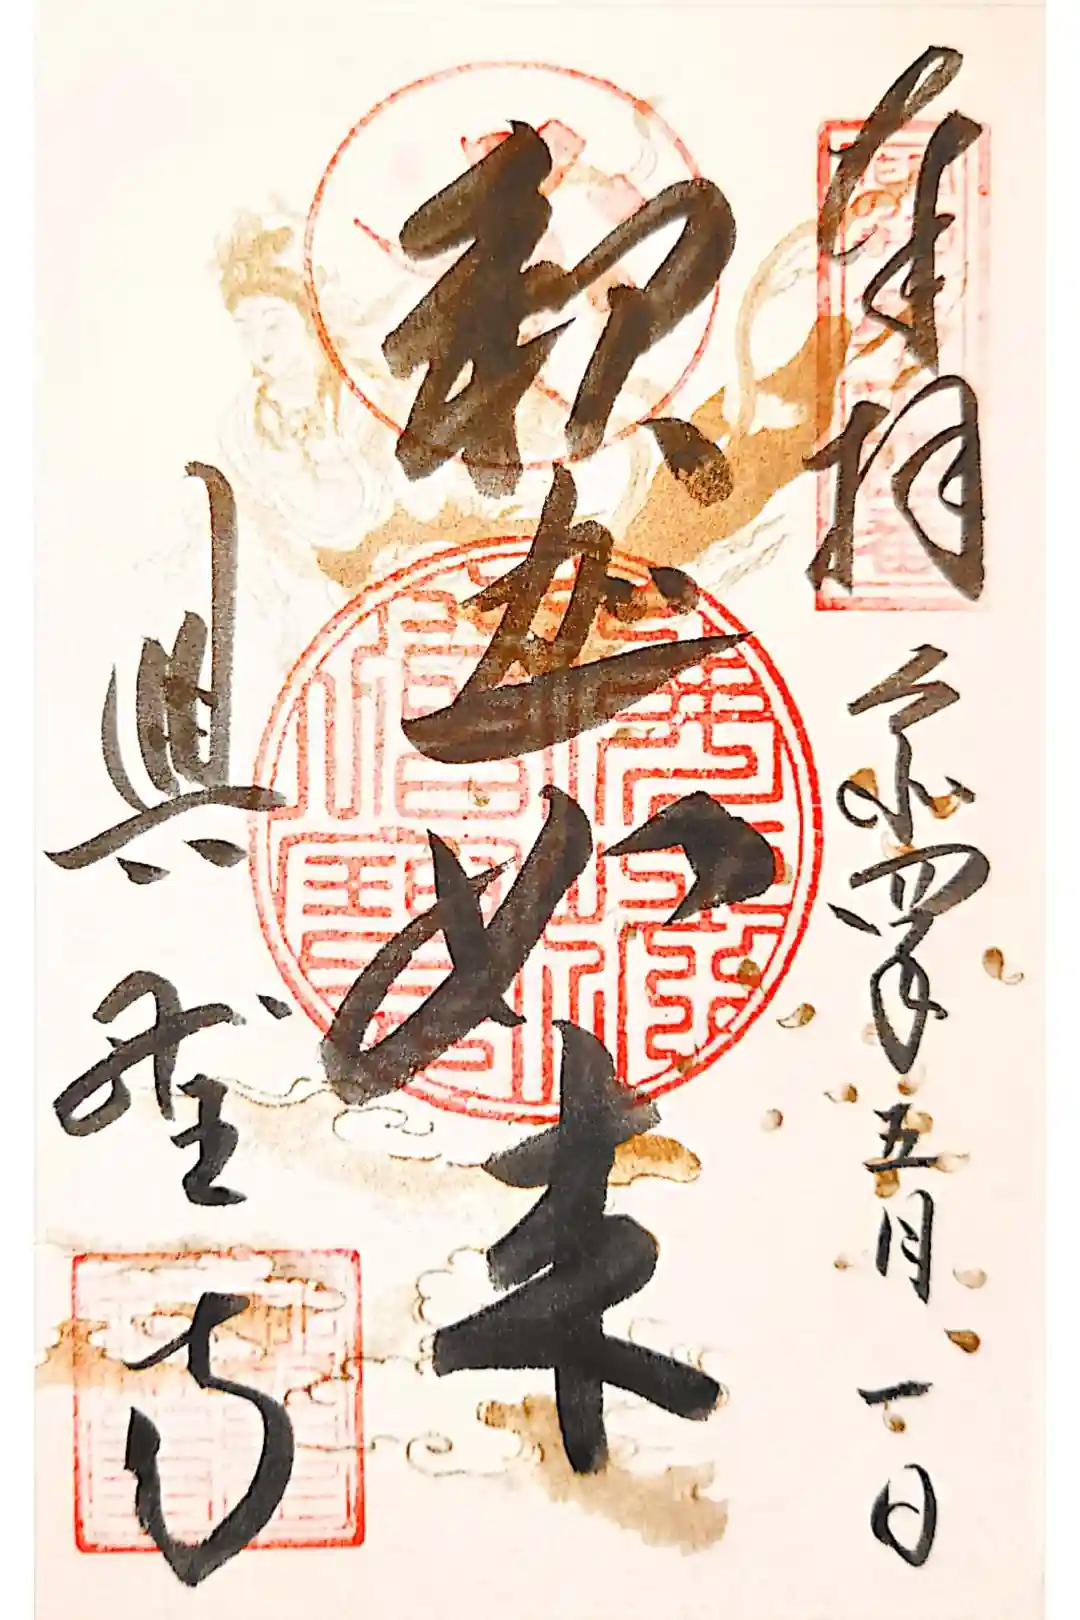 奉拝 令和四年五月一日
釈迦如来
興聖寺